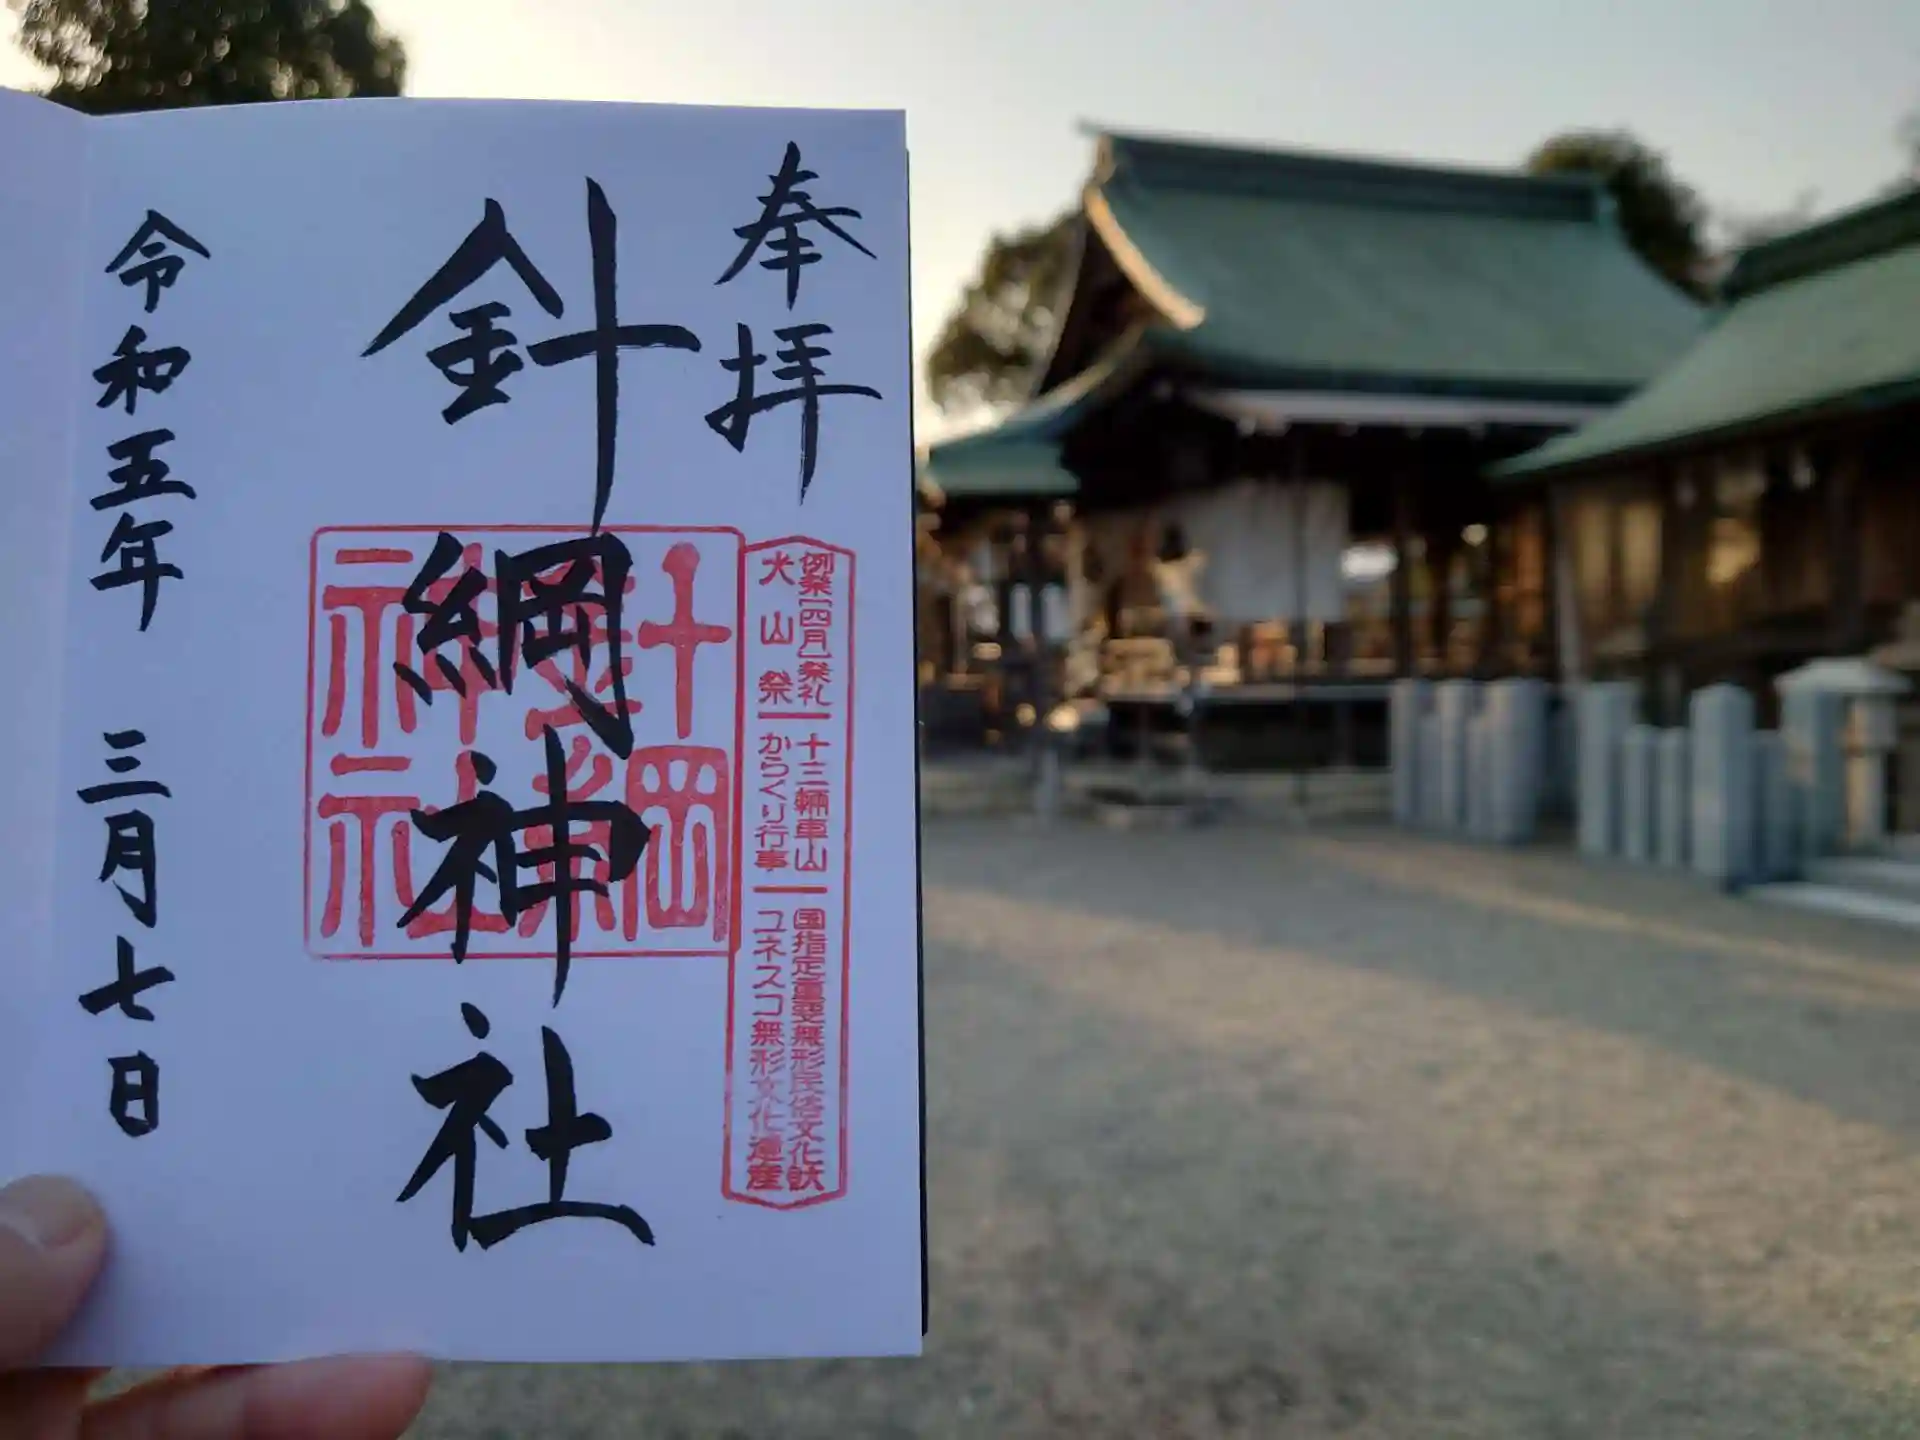 奉拝
針綱神社
令和五年 三月七日
針綱神社
例祭[四月]祭礼
犬山祭
十三輛車山
からくり行事
国指定重要無形民俗文化財
ユネスコ無形文化遺産